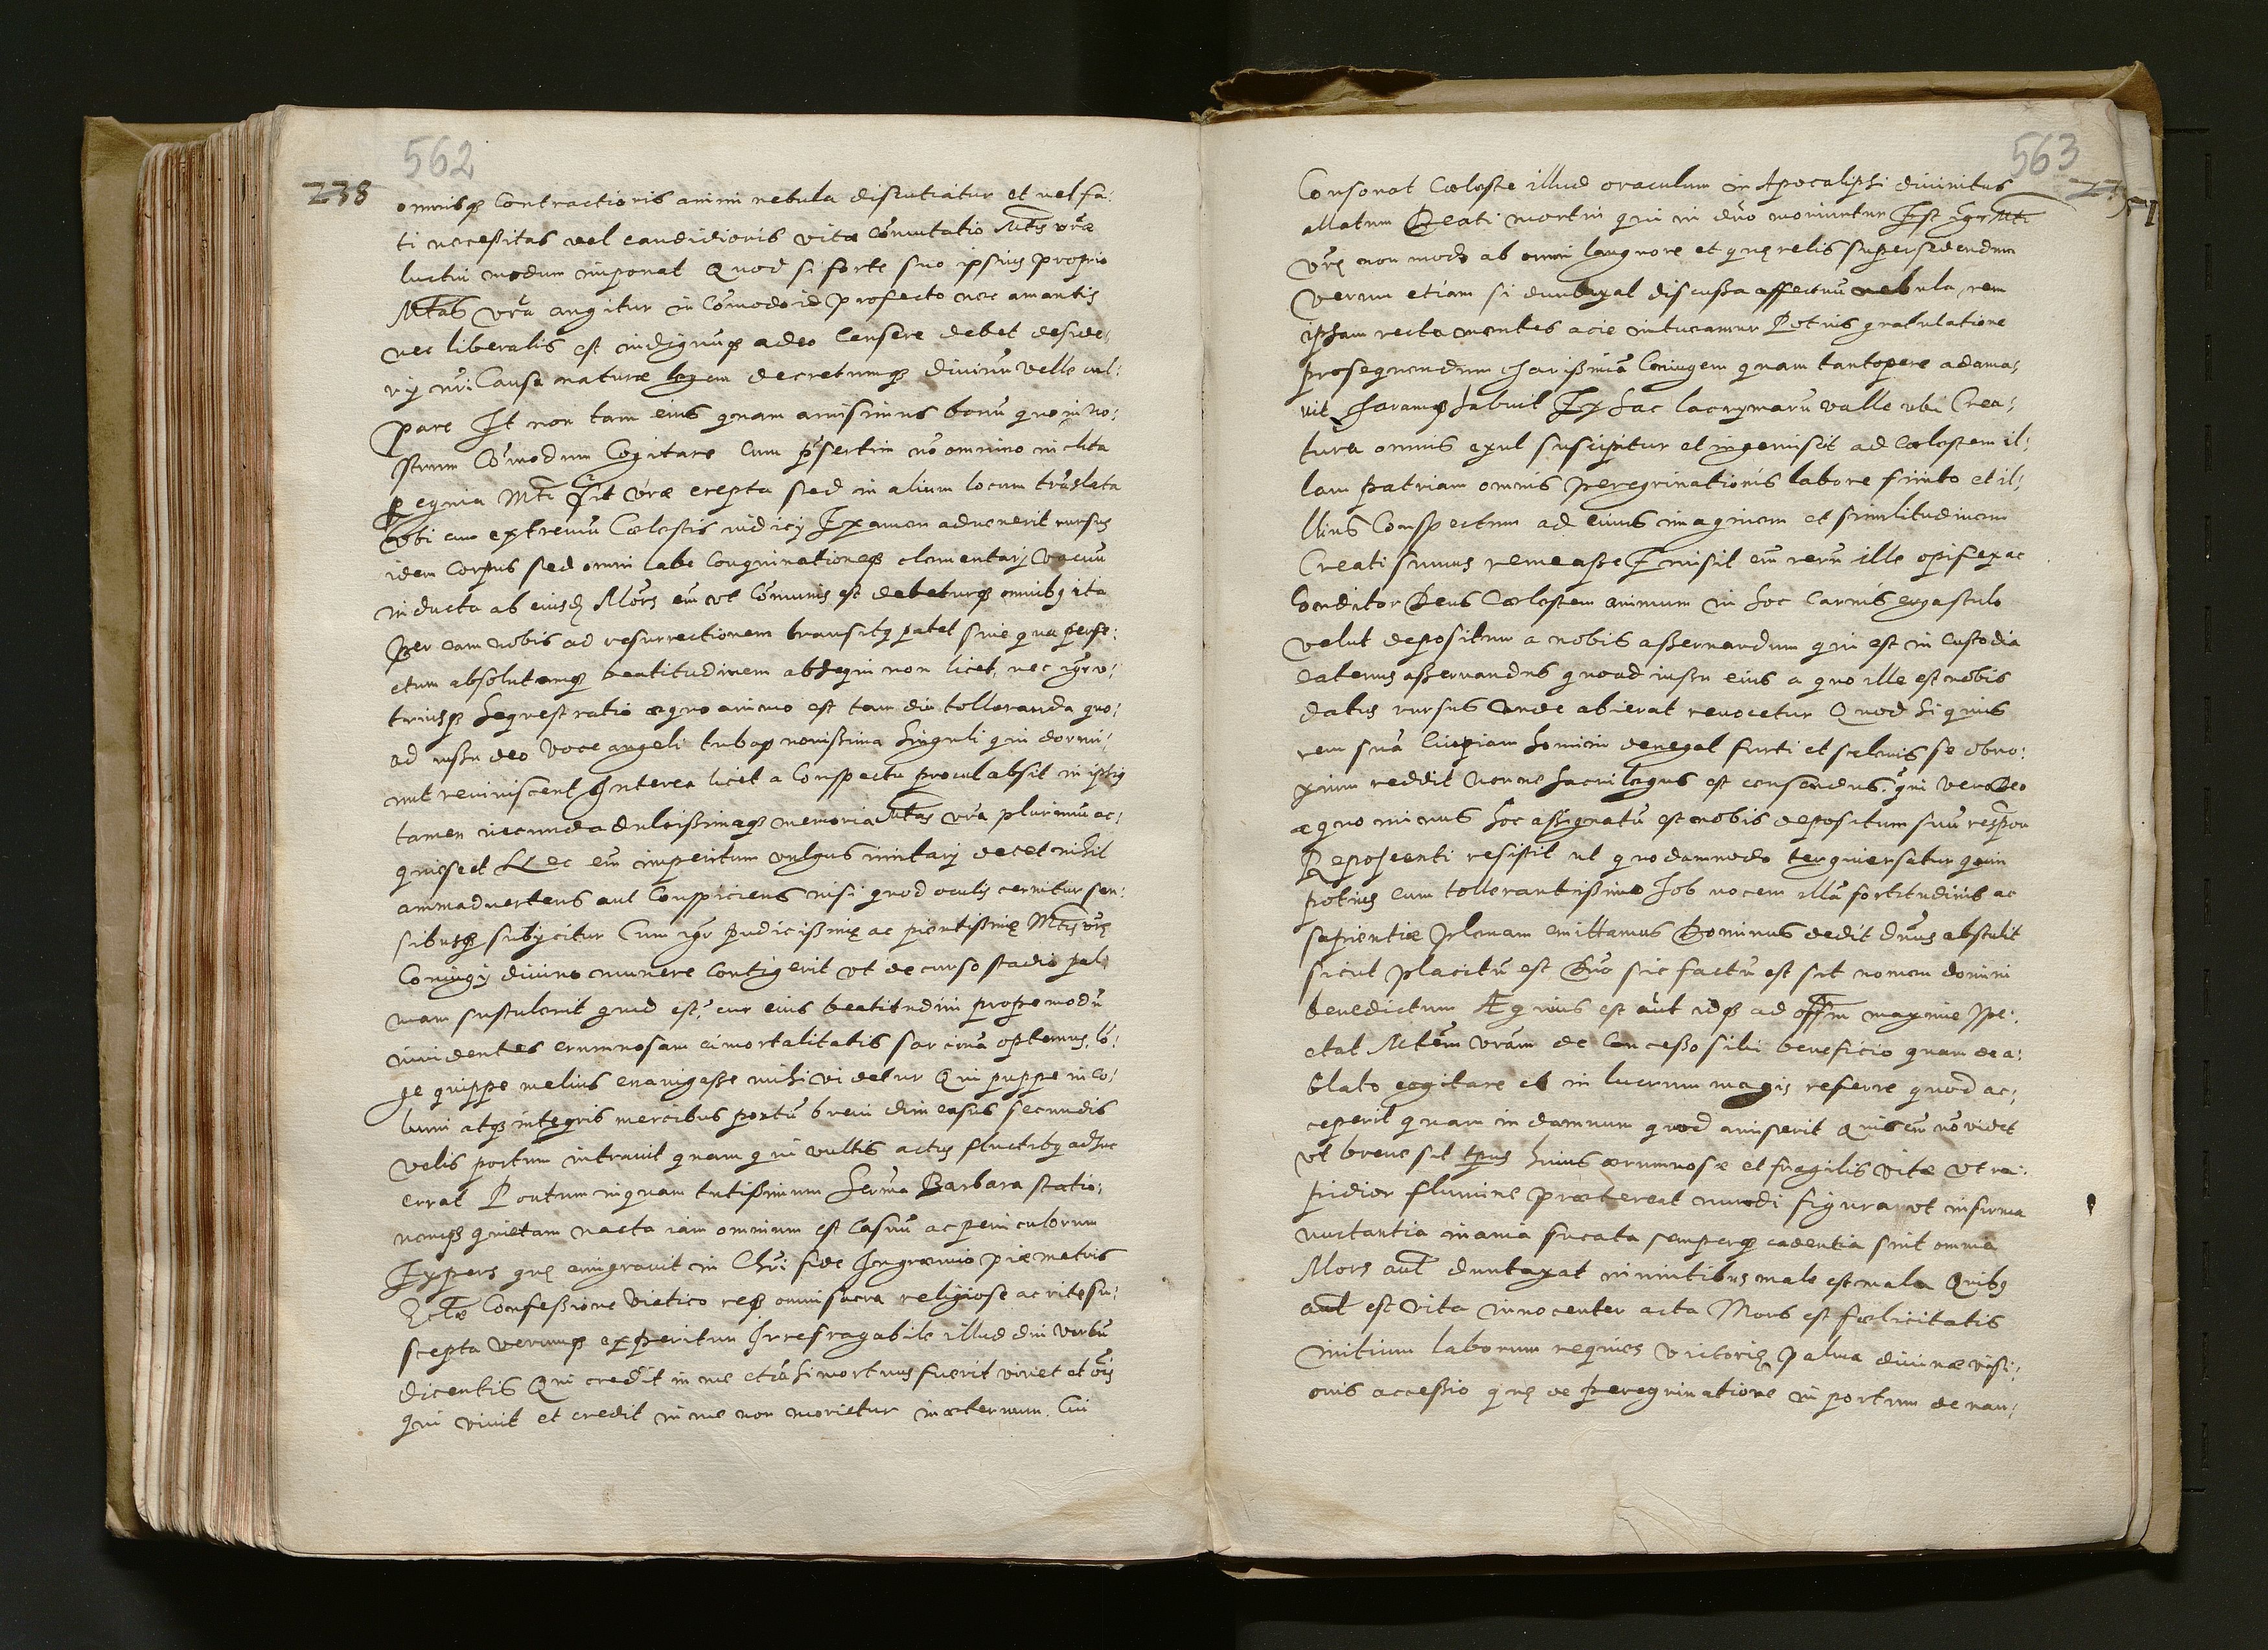 562
238
omnisq3 contractioris animi nebula discutiatur et vel fa:
ti necessitas vel candidioris vitæ cõmutatio Mtis vræ
luctui modum imponat Quod si forte suo ipsius proprio
Mtas vrã angitur in cõmodo id profecto nec amantis
nec liberalis est indignuq3 adeo censere debet deside,
rij nri Causa naturæ legem decretumq3 divinũ velle cul:
pare It non tam eius quam amisimus bonũ quo in no:
strum cõmodum Cogitare Cum p̃sertim nõ omnino inclita
regina Mti sit vræ erepta sed in alium locum trãslata
Vbi cum extremũ Cœlestis iudicij Examen advenerit rursus
idem Corpus sed omni labe coquinationeq3 elementarij vacuũ
inducta ab eiusd Mors em vt Cõmunis est debeturq3 omnibq ita
Per eam nobis ad resurrectionem transitq patet sine qua perfe:
ctum absolutamq3 beatitudinem assequi non licet, nec igr v:
triusq3 sequestratio æquo animo est tam diu tolleranda quo:
ad iussu deo voce angeli tubaq novissima singuli qui dormi:
unt reviviscent Interea licet a Conspectu procul absit in ipsiq
tamen iucunda dulcissimaq3 memoria Mtas vra plurimũ ac:
quiescet Nec em imperitum vulgus imitarj decet nihil
animadvertens aut Conspiciens nisi quod oculis cernitur sen:
sibusq3 subijcitur Cum igr pudicissimę ac pientissimę Mtis vrę
Coniugij divino munere contigerit vt decurso stadio pal:
mam sustulerit quid est? cur eius beatitudini propemodũ
invidentes erumnosam ei mortalitatis sarcinã optemus, lõ:
ge quippe melius enavigasse mihi videtur Qui puppe inco:
lumi atq3 integris mercibus portũ brevi dim casus secundis
velis portum intravit quam qui vultis actus fluctibq adhuc
errat Portum inquam tutissimum Serma Barbara statio:
nemq3 quietam nacta iam omnium est Casuũ ac periculorum
Expers quę emigravit in Chri fide In gremio piæ matris
Ecctæ Confessione Viatico req3 omni sacra religiose ac rite su:
scepta verumq3 experitur Irrefragabile illud dni verbũ
dicentis Qui credit in me etiã si mortuus fuerit vivet et ois
qui vivit et credit in me non morietur in æternum. Cui
563
Consonat Cœleste illud oraculum in Apocalipsi divinitus
allatum Beati mortui qui in dño moriuntur Est igr Mti
vrę non modo ab omni languore et quęrelis supersedendum
verum etiam si duntaxat discussa affectuũ nebula, rem
ipsam recta mentis acie intueamur Potius gratulatione
prosequendum charissimã Coniugem quam tantopere adama,
vit charamq3 habuit Ex hac lacrymarũ valle ubi Crea,
tura omnis exul suscipitur et ingemiscit ad Cœlestem il:
lam patriam omnis peregrinationis labore finito et il,
lius Conspectum ad cuius imaginem et similitudinem
Creati sumus remeasse Immisit em rerũ ille opifex ac
Conditor Deus Cœlestem animum in hoc Carnis ergastulo
velut depositum a nobis asservandum qui est in Custodia
eatenus asservandus quoad iussu eius a quo ille est nobis
datus rursus vnde abierat revocetur Quod si quis
rem suã Cuipiam homini denegat furti et sceleris se obno:
xium reddit Nonne Sacrilegus est censendus, qui vero Deo
a quo minus hoc assignatũ est nobis depositum suũ
Reposcenti resistit ut quodammodo tergiversatur quin
potius cum tollerantissimo Job vocem illã fortitudinis ac
sapientiæ plenam emittamus Dominus dedit dñus abstulit
sicut placitũ est Dño sic factũ est sit nomen domini
benedictum Æquius est aut idq3 ad offm maxime spe:
ctat Mtem vrãm de Concesso sibi beneficio quam de a:
blato cogitare et in lucrum magis referre quod ac,
ceperit quam in damnum quod amiserit Quis em nõ videt
vt breve sit tpus huius ærumnosæ et fragilis vitæ vt ra:
pidior flumine prætereat mundi figura, vt infirma
nuctantia inania fucata semperq3 cadentia sint omnia
Mors aut duntaxat in viventibus male est mala Quibq
aut est vita innocenter acta Mors est fœlicitatis
initium laborum requies victorię palma divinæ visi:
onis accessio quę de peregrinatione in portum de nau,